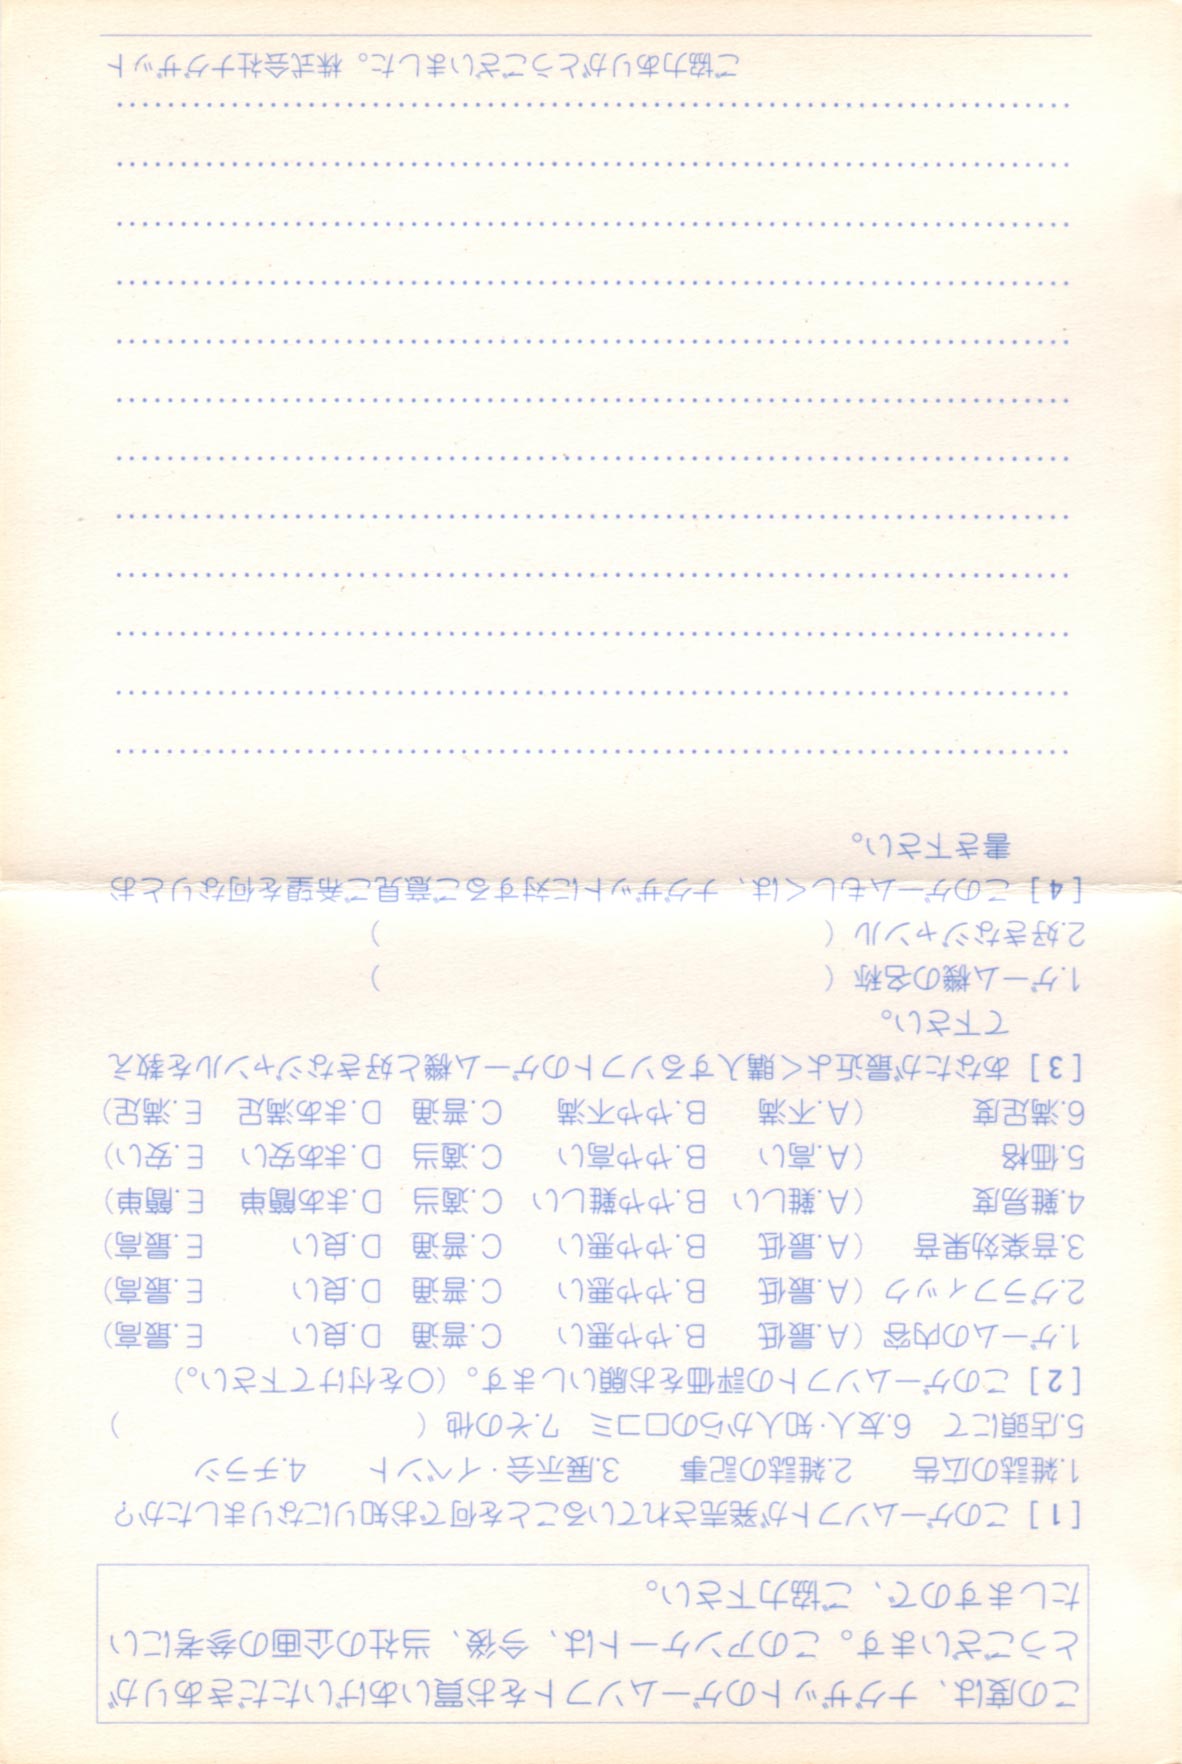 この度は、ナグザットのゲームソフトをお買いあげいただきありが
とうございます。このアンケートは、今後、当社の企画の参考にい
たしますので、ご協力下さい。
[1] このゲームソフトが発売されていることを何でお知りになりましたか？
1.雑誌の広告 2.雑誌の記事 3.展示会・イベント 4.チラシ
5.店頭にて 6.友人・知人からの口コミ 7.その他（ ）
[2] このゲームソフトの評価をお願いします。（○を付けて下さい。）
1.ゲームの内容（A.最低 B.やや悪い C.普通 D.良い E.最高）
2.グラフィック（A.最低 B.やや悪い C.普通 D.良い E.最高）
3.音楽効果音（A.最低 B.やや悪い C.普通 D.良い E.最高）
4.難易度（A.難しい B.やや難しい C.適当 D.まあ簡単 E.簡単）
5.価格（A.高い B.やや高い C.適当 D.まあ安い E.安い）
6.満足度（A.不満 B.やや不満 C.普通 D.まあ満足 E.満足）
[3] あなたが最近よく購入するソフトのゲーム機と好きなジャンルを教え
て下さい。
1.ゲーム機の名称（ ）
2.好きなジャンル（ ）
[4] このゲームもしくは、ナグザットに対するご意見ご希望を何なりとお
書き下さい。
ご協力ありがとうございました。株式会社ナグザット